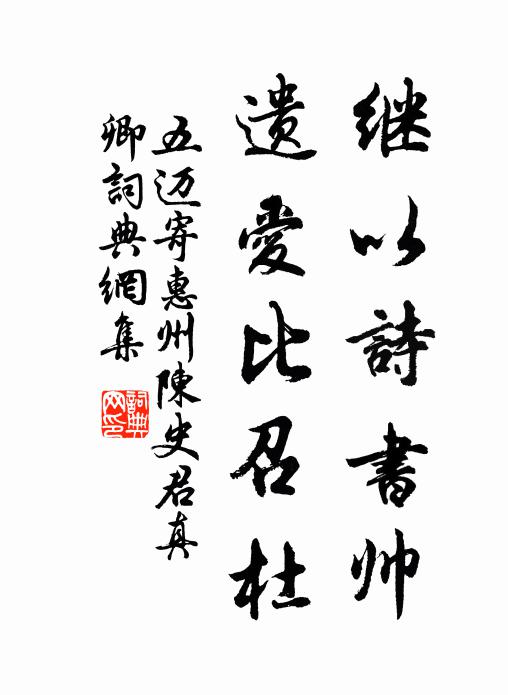 继以詩書帅
遗愛比召杜
五迈寄惠州陳史君真
卿詞典網集
詞典
网印